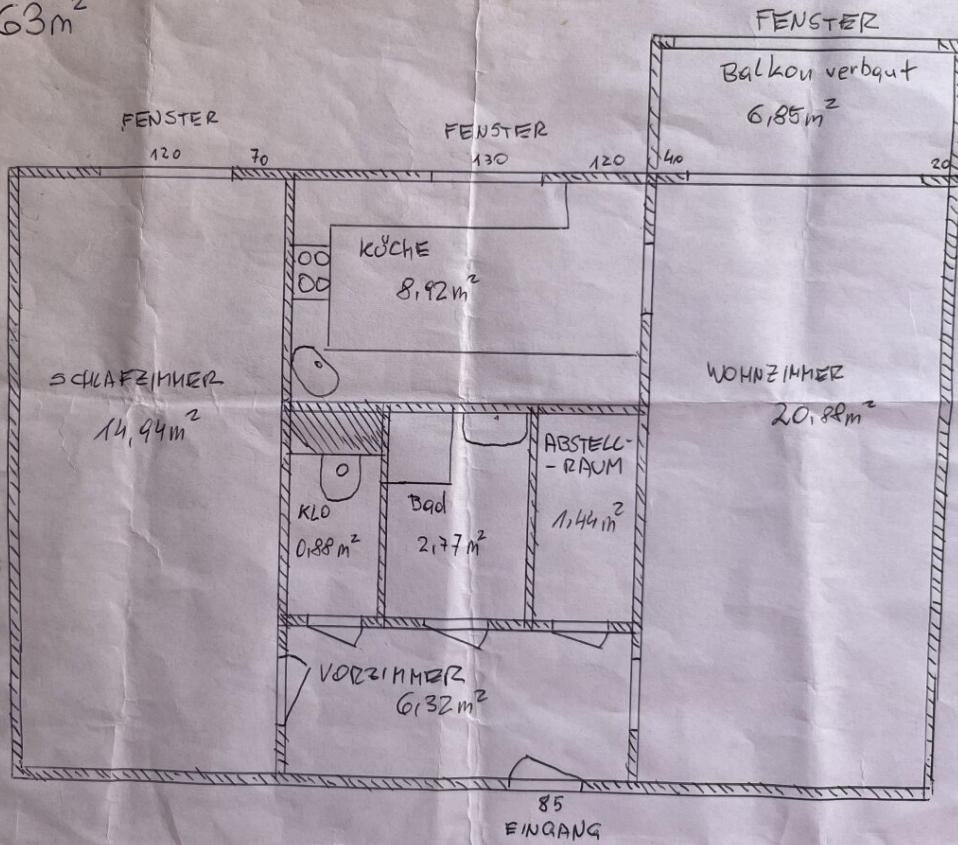 63m²
FENSTER
Balkon verbaut
6,85m²
FENSTER
FENSTER
120
70
130
120
40
20
KÜCHE
8,92m²
SCHLAFZIMMER
14,94m²
WOHNZIMMER
20,88m²
ABSTELL-
-RAUM
1,44m²
KLO
0,88m²
Bad
2,77m²
VORZIMMER
6,32m²
85
EINGANG